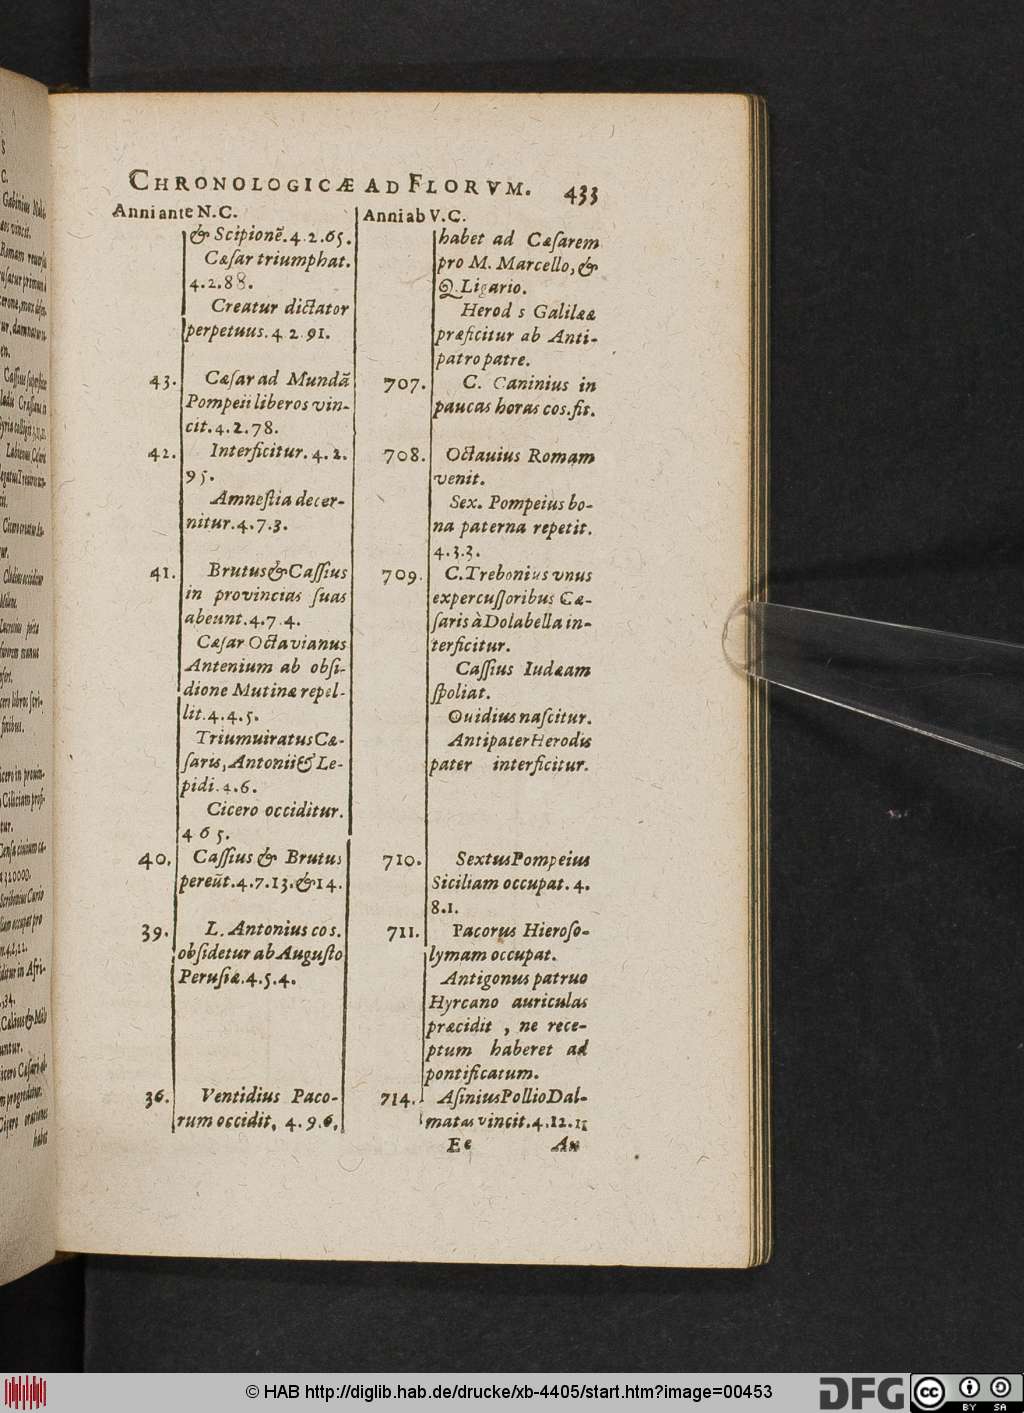 CHRONOLOGICÆ AD FLORVM. 433
Anni ante N.C.
& Scipionẽ.4.2.65.
Cæsar triumphat.
4.2.88.
Creatur dictator
perpetuus.4 2.91.
43. Cæsar ad Mundã
Pompeii liberos vin-
cit.4.2.78.
42. Interficitur.4.2.
95.
Amnestia decer-
nitur.4.7.3.
41. Brutus & Cassius
in provincias suas
abeunt.4.7.4.
Cæsar Octavianus
Antenium ab obsi-
dione Mutinæ repel-
lit.4.4.5.
Triumuiratus Cæ-
saris, Antonii & Le-
pidi.4.6.
Cicero occiditur.
4 6 5.
40. Cassius & Brutus
pereũt.4.7.13.&14.
39. L. Antonius cos.
obsidetur ab Augusto
Perusiæ.4.5.4.
36. Ventidius Paco-
rum occidit, 4.9.6.
Anni ab V.C.
habet ad Cæsarem
pro M. Marcello, &
Q. Ligario.
Herod s Galilææ
præficitur ab Anti-
patro patre.
707. C. Caninius in
paucas horas cos.fit.
708. Octauius Romam
venit.
Sex. Pompeius bo-
na paterna repetit.
4.3.3.
709. C. Trebonius vnus
expercussoribus Cæ-
saris à Dolabella in-
terficitur.
Cassius Iudæam
spoliat.
Ouidius nascitur.
Antipater Herodis
pater interficitur.
710. Sextus Pompeius
Siciliam occupat. 4.
8.1.
711. Pacorus Hieroso-
lymam occupat.
Antigonus patruo
Hyrcano auriculas
præcidit , ne rece-
ptum haberet ad
pontificatum.
714. Asinius Pollio Dal-
matas vincit.4.12.11
Ee An
© HAB http://diglib.hab.de/drucke/xb-4405/start.htm?image=00453
DFG
cc BY SA